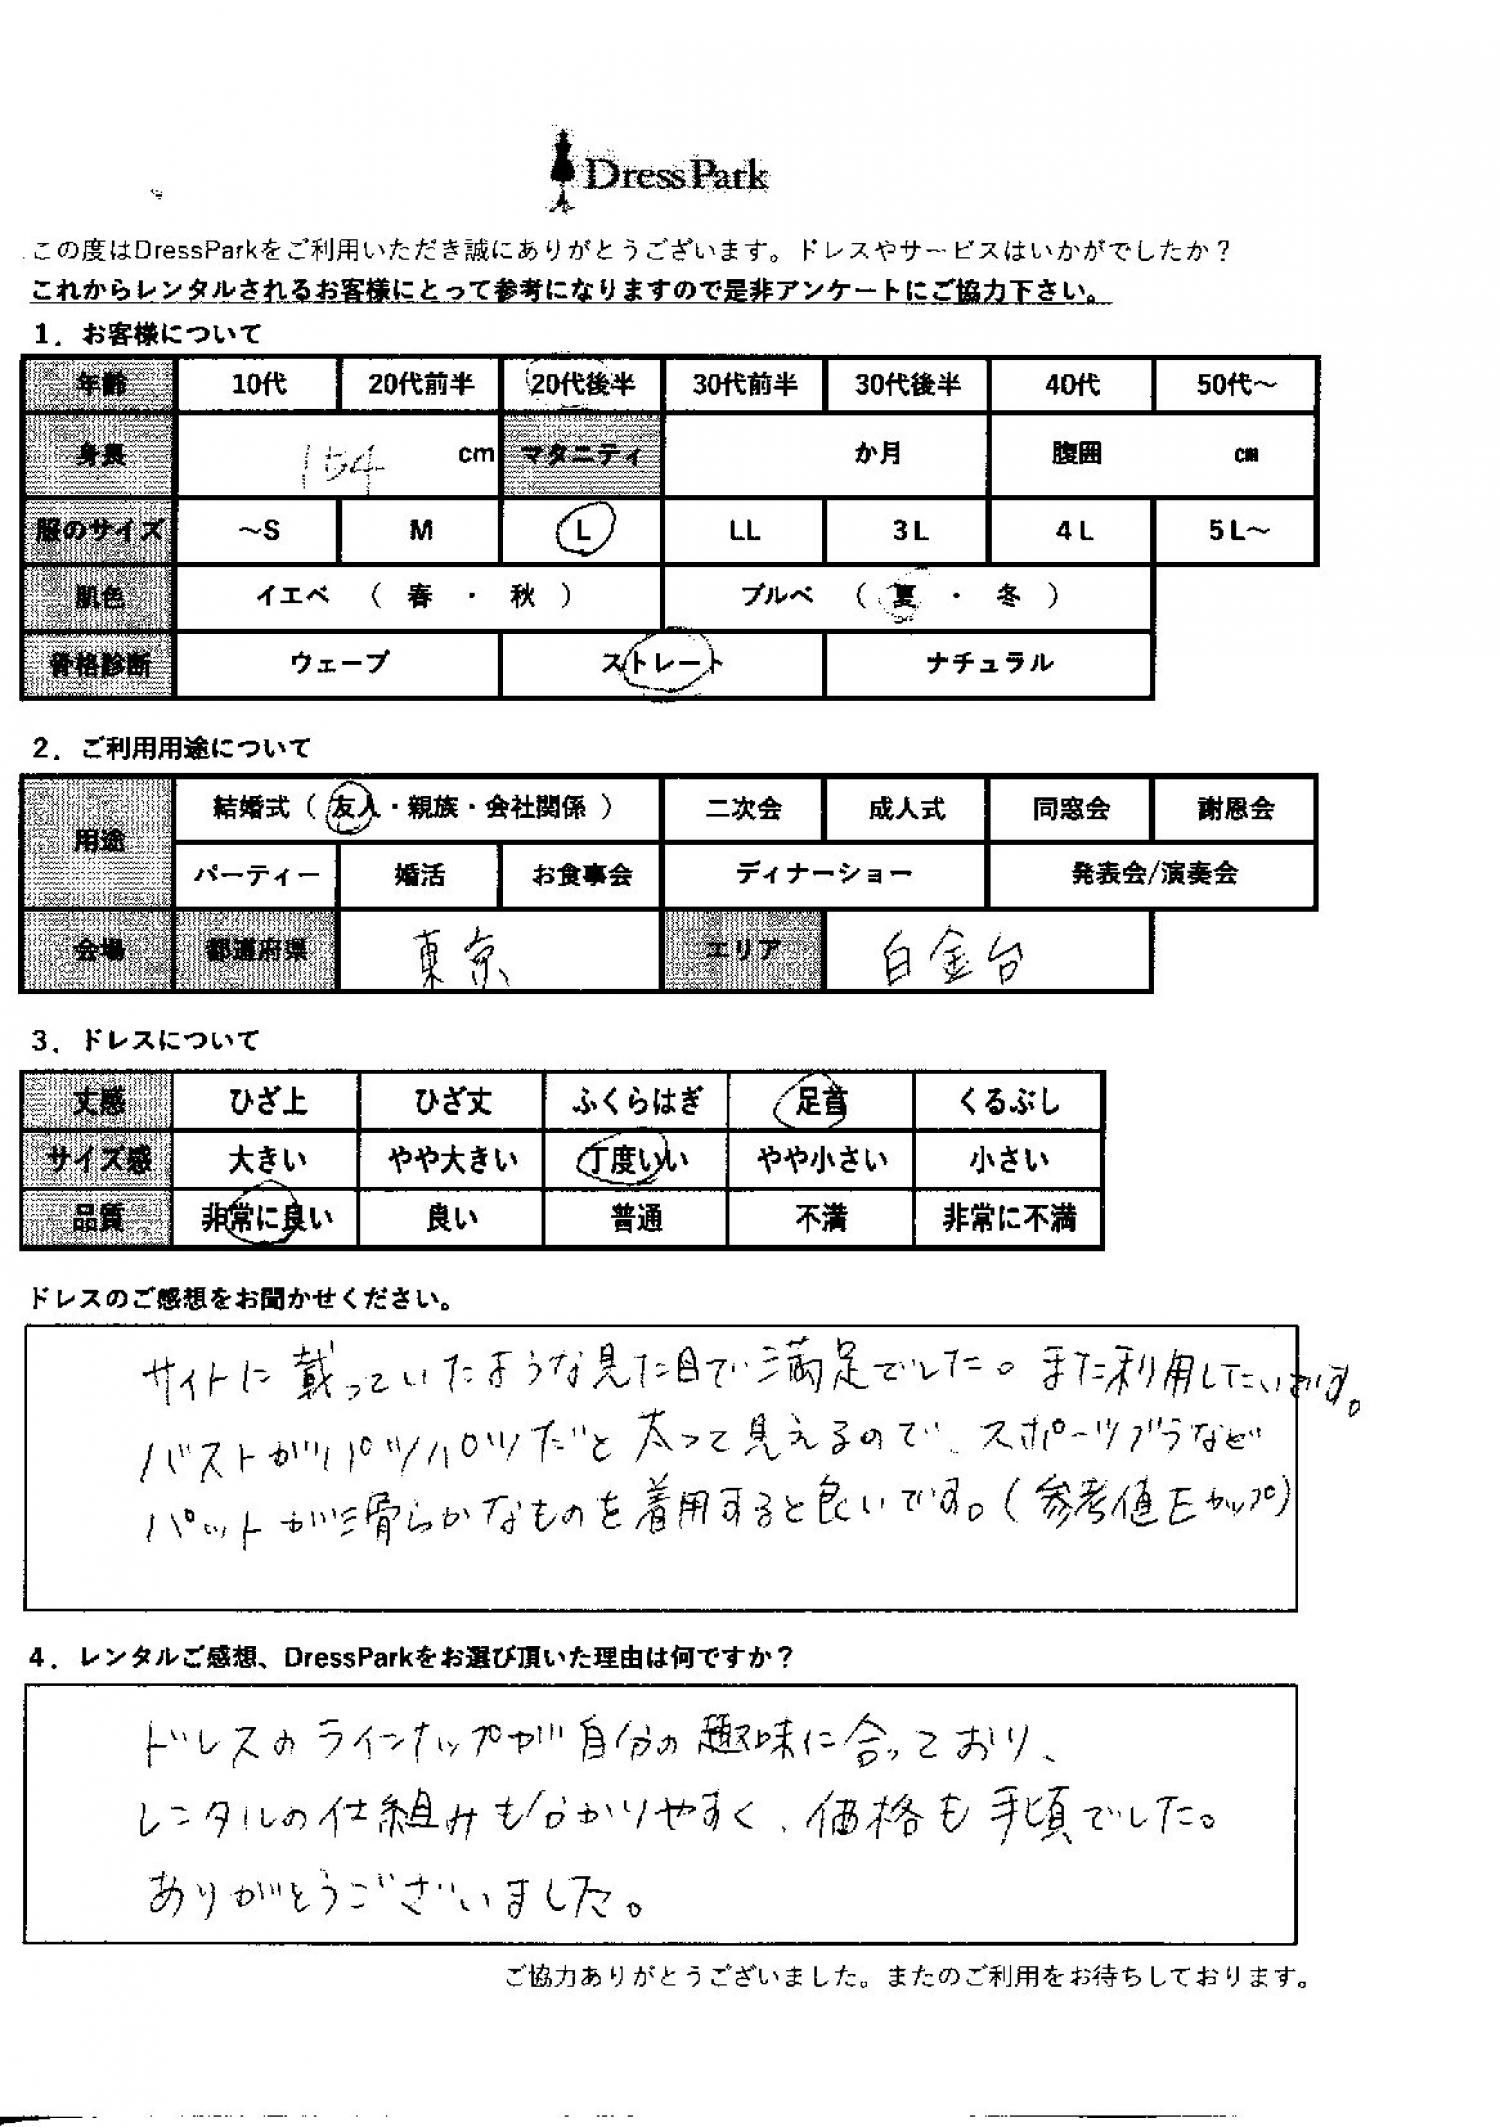 DressPark
この度はDressParkをご利用いただき誠にありがとうございます。ドレスやサービスはいかがでしたか？
これからレンタルされるお客様にとって参考になりますので是非アンケートにご協力下さい。
1．お客様について
年齢 10代 20代前半 20代後半 30代前半 30代後半 40代 50代～
身長 154 cm マタニティ か月 腹囲 cm
服のサイズ ～S M L LL 3L 4L 5L～
肌色 イエベ （ 春 ・ 秋 ） ブルベ （ 夏 ・ 冬 ）
骨格診断 ウェーブ ストレート ナチュラル
2．ご利用用途について
用途 結婚式（ 友人・親族・会社関係 ） 二次会 成人式 同窓会 謝恩会
パーティー 婚活 お食事会 ディナーショー 発表会/演奏会
会場 都道府県 東京 エリア 白金台
3．ドレスについて
丈感 ひざ上 ひざ丈 ふくらはぎ 足首 くるぶし
サイズ感 大きい やや大きい 丁度いい やや小さい 小さい
品質 非常に良い 良い 普通 不満 非常に不満
ドレスのご感想をお聞かせください。
サイトに載っていたような見た目で満足でした。また利用したいです。
バストがパツパツだと太って見えるので、スポーツブラなど
パットが滑らかなものを着用すると良いです。(参考値Eカップ)
4．レンタルご感想、DressParkをお選び頂いた理由は何ですか？
ドレスのラインナップが自分の趣味に合っており、
レンタルの仕組みも分かりやすく、価格も手頃でした。
ありがとうございました。
ご協力ありがとうございました。またのご利用をお待ちしております。